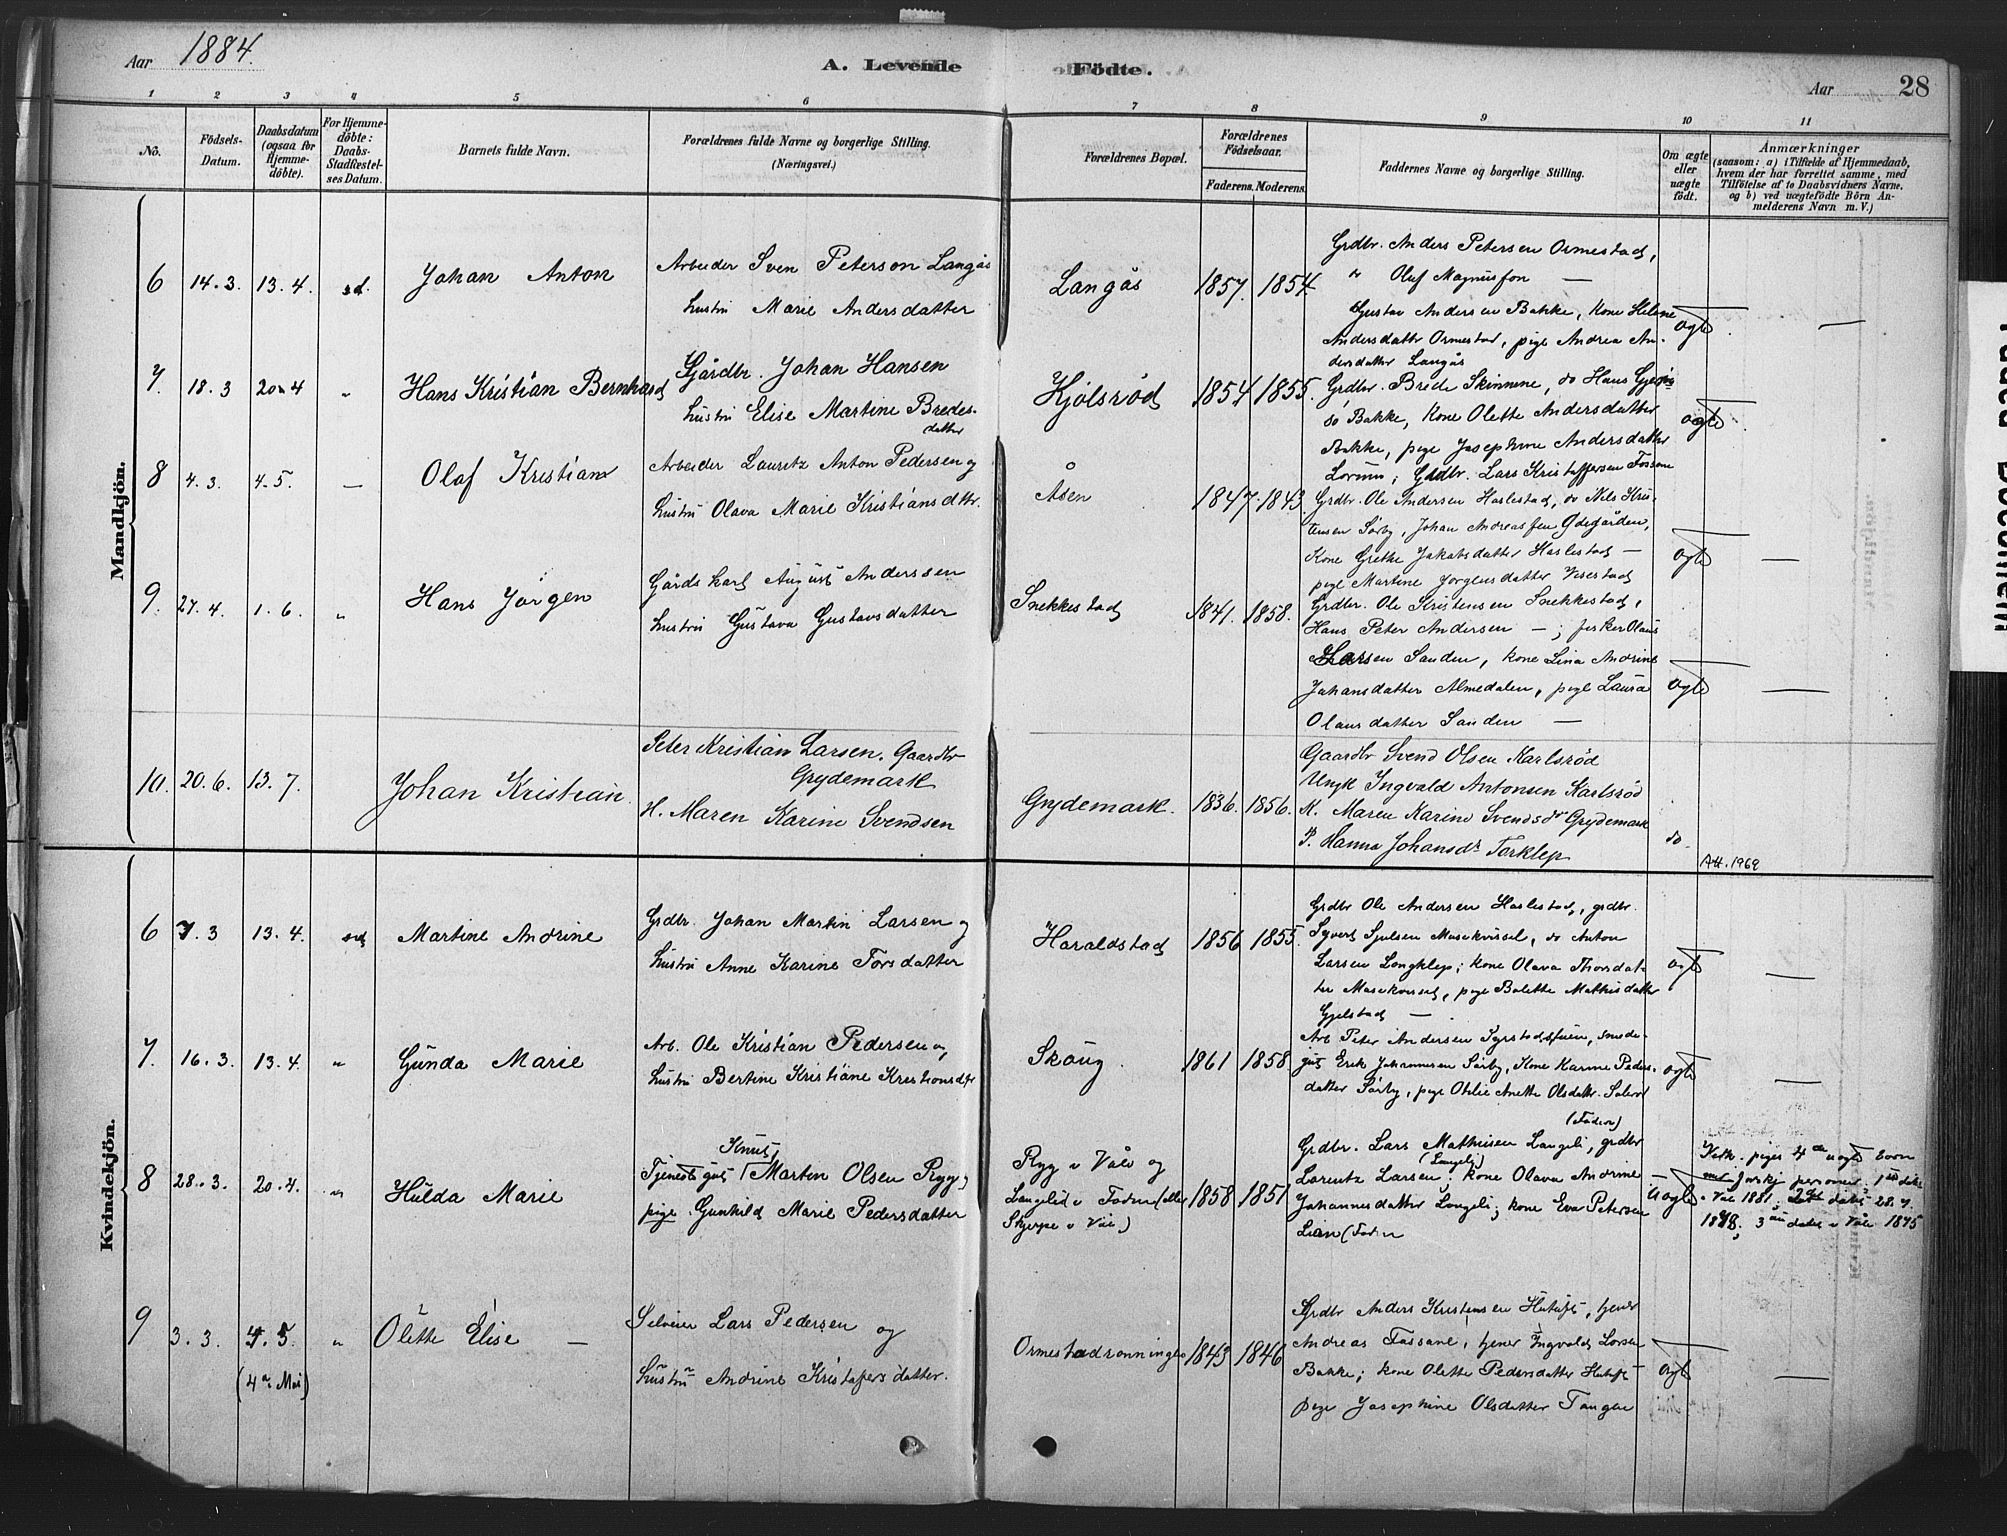 Aar 1884.
A. Levende Födte.
Aar 28
1 2 3 4 5 6 7 8 9 10 11
No.
Födsels-Datum.
Daabsdatum (ogsaa for Hjemmedöbte).
For Hjemmedöbte: Daabs-Stadfæstelses Datum.
Barnets fulde Navn.
Forældrenes fulde Navne og borgerlige Stilling.
(Næringsvei.)
Forældrenes Bopæl.
Forældrenes Födselsaar.
Faderens. Moderens.
Faddernes Navne og borgerlige Stilling.
Om ægte eller uægte födt.
Anmærkninger
(saasom: a) i Tilfælde af Hjemmedaab,
hvem der har forrettet samme, med
Tilföielse af to Daabsvidners Navne,
og b) ved uægtefödte Börn Anmelderens Navn m. V.)
Mandkjön.
6 14.3. 13.4. sd. Johan Anton
Arbeider Sven Peterson Langås
hustru Marie Andersdatter
Langås 1857. 1854.
Grdbr. Anders Petersen Ormestad,
" Oluf Magnusson —
Gustav Andersen Bakke, Kone Helene
Andersdatter Ormestad, pige Andrea An-
dersdatter Langås
ægte —
7. 18.3 20.4 " Hans Kristian Bernhard
Gjårdbr. Johan Hansen
hustru Elise Martine Bredes-
datter
Kjølsrød 1854 1855.
Grdbr. Brede Skinnene, do Hans
do Bakke, Kone Olette Andersdatter
Bakke, pige Josephine Andersdatter
; Grdbr. Lars Kristoffersen Fossane
ægte
8 4.3. 4.5. — Olaf Kristian
Arbeider Lauritz Anton Pedersen og
hustru Olava Marie Kristiansdtr.
Åsen 1847. 1843.
Grdbr. Ole Andersen Harlestad, do Nils Kris-
tensen Sørby, Johan Andreassen Ødegården,
Kone Grethe Jakobsdatter Harlestad —
pige Martine Jørgensdatter
ægte —
9. 27.4. 1.6. " Hans Jørgen
Gårdskarl August Anderssen
hustru Gustava Gustavsdatter
Snekkestad 1841. 1858.
Grdbr. Ole Kristensen Snekkestad,
Hans Peter Andersen — ; fisker Olaus
Larsen Sanden, kone Lina Andrine
Johansdatter Almedalen, pige Laura
Olausdatter Sanden —
ægte —
10. 20.6. 13.7. Johan Kristian.
Peter Kristian Larsen. Gaardbr
Grydemark
H. Maren Karine Svendsen
Grydemark. 1836. 1856.
Gaardbr Svend Olsen Karlsrød
Ungk Ingvald Antonsen Karlsrød
K. Maren Karine Svendsdr Grydemark
P. Hanna Johansdr Torklep
do.
Att. 1969
Kvindekjön.
6 7.3 13.4. sd Martine Andrine
Grdbr. Johan Martin Larsen og
hustru Anne Karine Torsdatter
Haraldstad 1856 1855.
Grdbr Ole Andersen Harlestad, grdbr.
Syvert do Anton
Larsen Langklep; kone Olava Thorsdat-
ter pige Bolette Mathisdatter
Gjelstad —
ægte —
7. 16.3. 13.4. " Gunda Marie
Arb. Ole Kristian Pedersen og
hustru Bertine Kristiane Kristiansdtr
Skoug. 1861 1858
Arb Peter Andersen smede-
gut Erik Johannesen Sørby, Kone Karine Peders-
datter Sørby, pige Otilie Anette Olsdattr.
ægte —
8 28.3. 20.4. " Hulda Marie
Knut,
Tjenestegut Martin Olsen Ryg og
pige Gunhild Marie Pedersdatter
Ryg i Våle og
Langelid i Fadum (eller
Skjerpe i Våle)
1858 1851
(Fadum)
Grdbr. Lars Mathisen Langeli, grdbr
(Langeli)
Lorentz Larsen. kone Olava Andrine
Johannesdatter Langeli; kone Eva Petersen
Lian (Fadum
uægte
pigens 4de uægte barn
med personer. 1ste døbt
i Våle 1881. 2det døbt 28.7.
1878, 3die døbt i Våle 1875
9 3.3. 4.5. (4de Mai) " Olette Elise —
Selveier Lars Pedersen og
hustru Andrine Kristofersdatter.
Ormestadrønningen 1843 1846
Grdbr Anders Kristensen Hutuft, tjener
Andreas Fossane, tjener Ingvald Larsen
Bakke; kone Olette Pedersdatter Hutuft
pige Josephine Olsdatter Tangen
ægte —